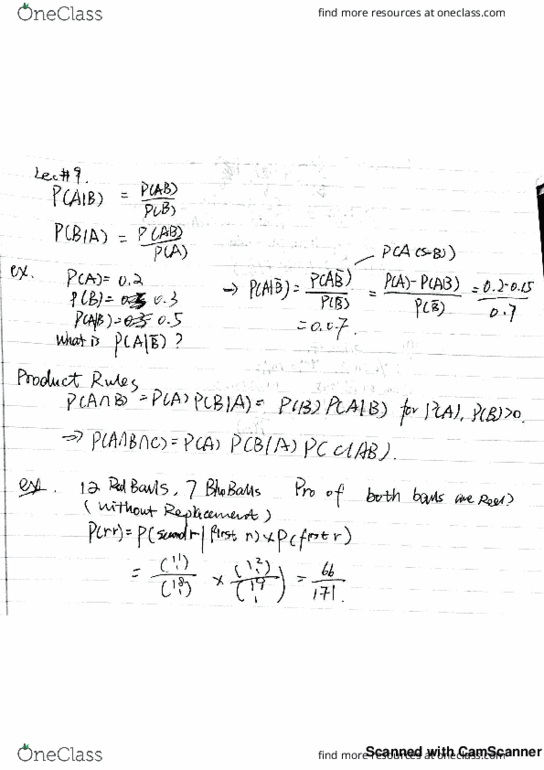 OneClass
find more resources at oneclass.com
Lec#9.
P(A|B) = P(AB) / P(B)
P(B|A) = P(AB) / P(A)
P(A(S-B))
ex. P(A) = 0.2
P(B) = 0.3
P(A|B) = 0.5
What is P(A|B̄) ?
→ P(A|B̄) = P(AB̄) / P(B̄) = P(A) - P(AB) / P(B̄) = 0.2-0.15 / 0.7
= 0.07.
Product Rules
P(A∩B) = P(A) P(B|A) = P(B) P(A|B) for P(A), P(B)>0.
⇒ P(A∩B∩C) = P(A) P(B|A) P(C|AB).
ex. 12 Red Balls, 7 Blue Balls Pro of both balls are Red?
(without Replacement)
P(rr) = P(second r | first r) × P(first r)
= (11 1) / (18 1) × (12 1) / (19 1) = 66 / 171.
Scanned with CamScanner
OneClass
find more resources at oneclass.com